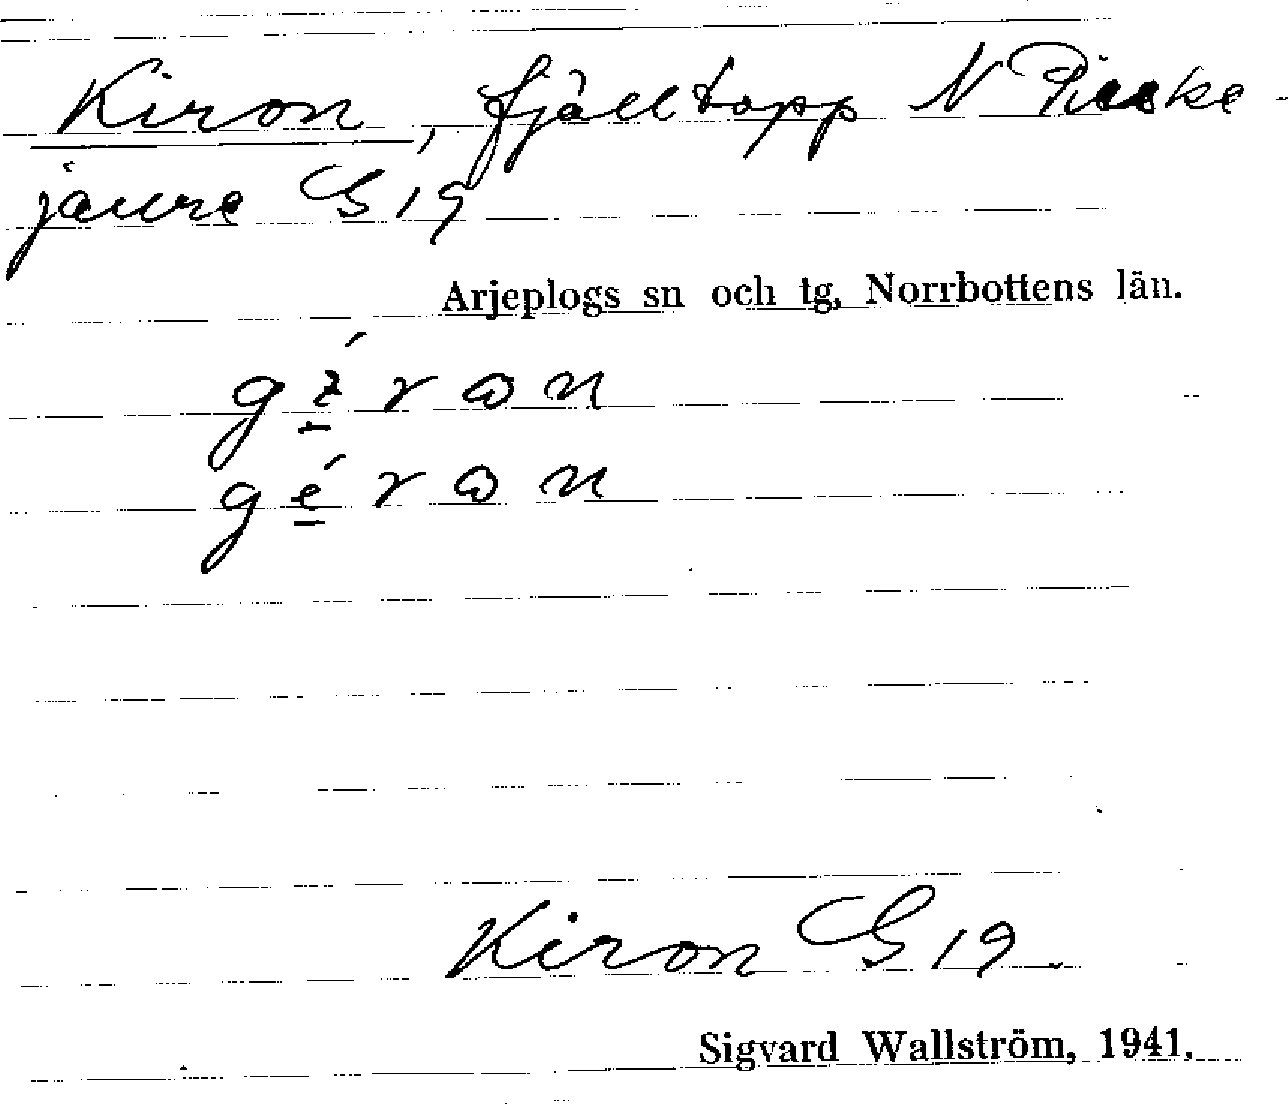 Kiron, fjälltopp N Pieske-
jaure G 19
Arjeplogs sn och tg, Norrbottens län.
gíron
géron
Kiron G 19
Sigvard Wallström, 1941.